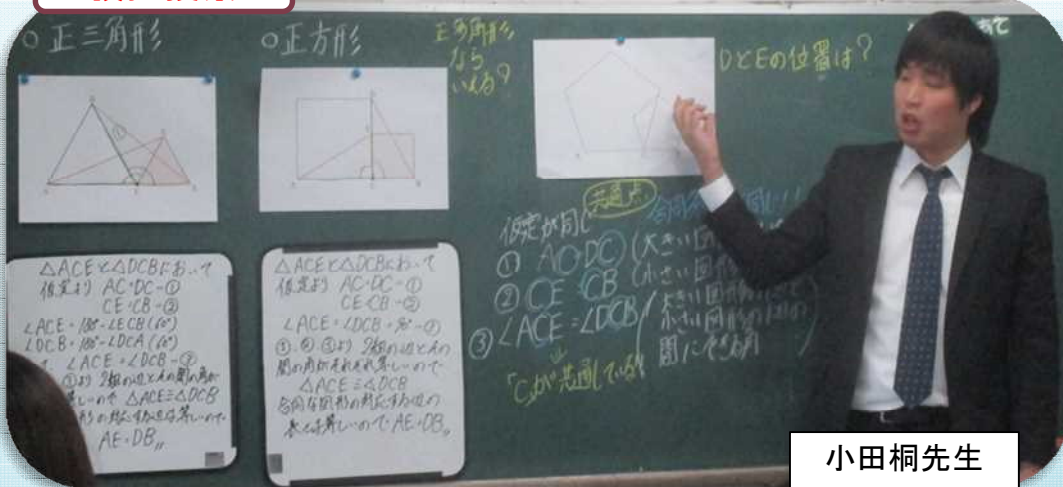 ○正三角形
○正方形
正多角形
なら
いえる?
DとEの位置は?
△ACEと△DCBにおいて
仮定より AC=DC-①
CE=CB-②
∠ACE=180°-∠ECB(60°)
∠DCB=180°-∠DCA(60°)
∠ACE=∠DCB-③
より 2組の辺とその間の角が
しいので △ACE≡△DCB
AE=DB〃
△ACEと△DCBにおいて
仮定より AC=DC-①
CE=CB-②
∠ACE=∠DCB=90°-③
①,②,③より 2組の辺とその
間の角がそれぞれ等しいので
△ACE≡△DCB
合同な図形の対応する辺の
長さは等しいので AE=DB〃
共通点
仮定が同じ
① AC=DC(大きい図
② CE=CB(小さい図形
③ ∠ACE=∠DCB(大きい図形
小さい図形の
間にできる角)
「C」が共通している!!
小田桐先生